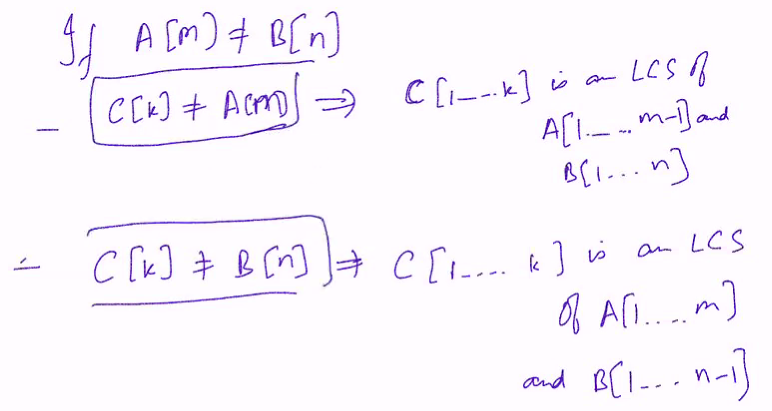 If A[m] ≠ B[n]
- C[k] ≠ A[m] ⇒ C[1--..k] is an LCS of
A[1.-..m-1] and
B[1...n]
- C[k] ≠ B[n] ⇒ C[1.... k] is an LCS
of A[1.....m]
and B[1--.. n-1]